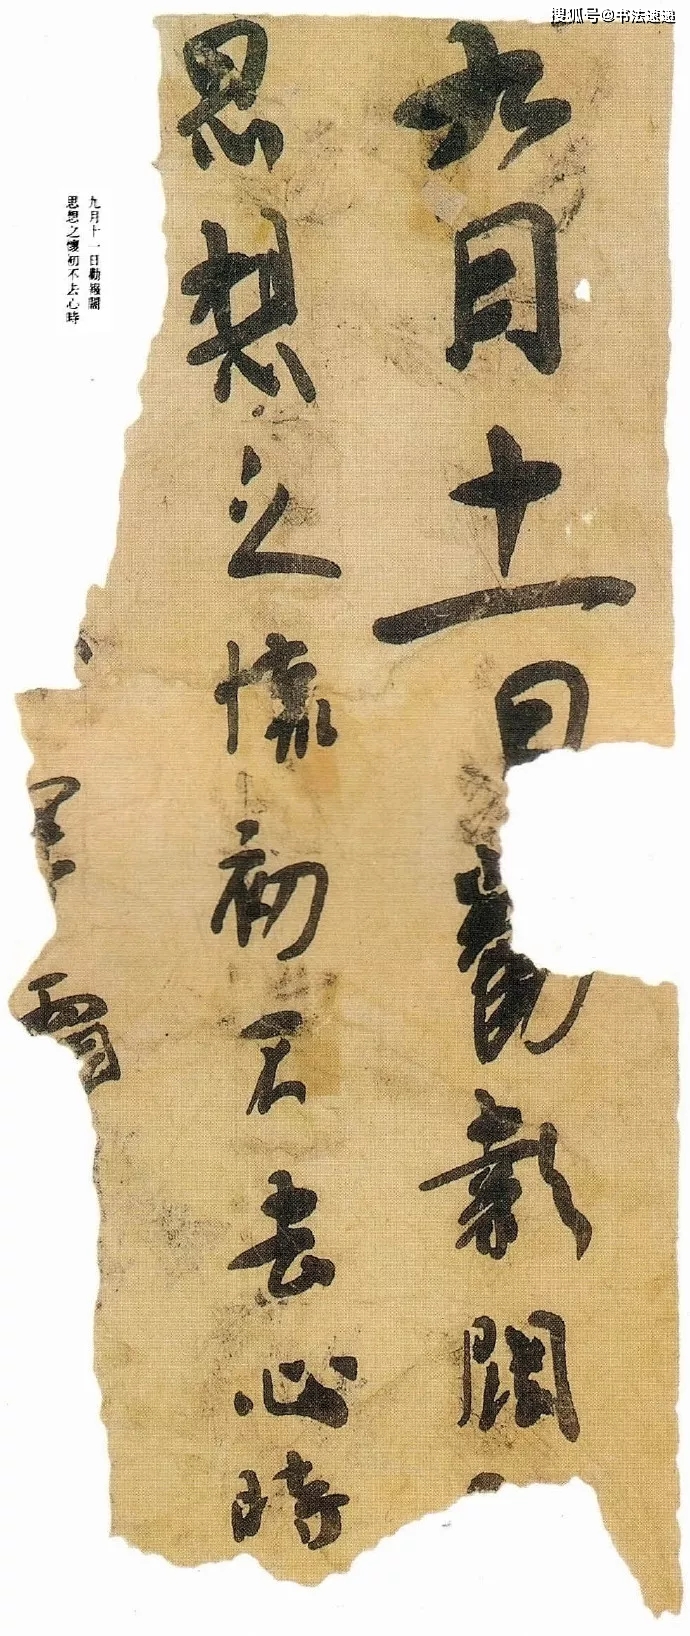 搜狐号@书法速递
九月十一日勸闊
思想之懷初不去心時
九月十一日勸闊
思想之懷初不去心時